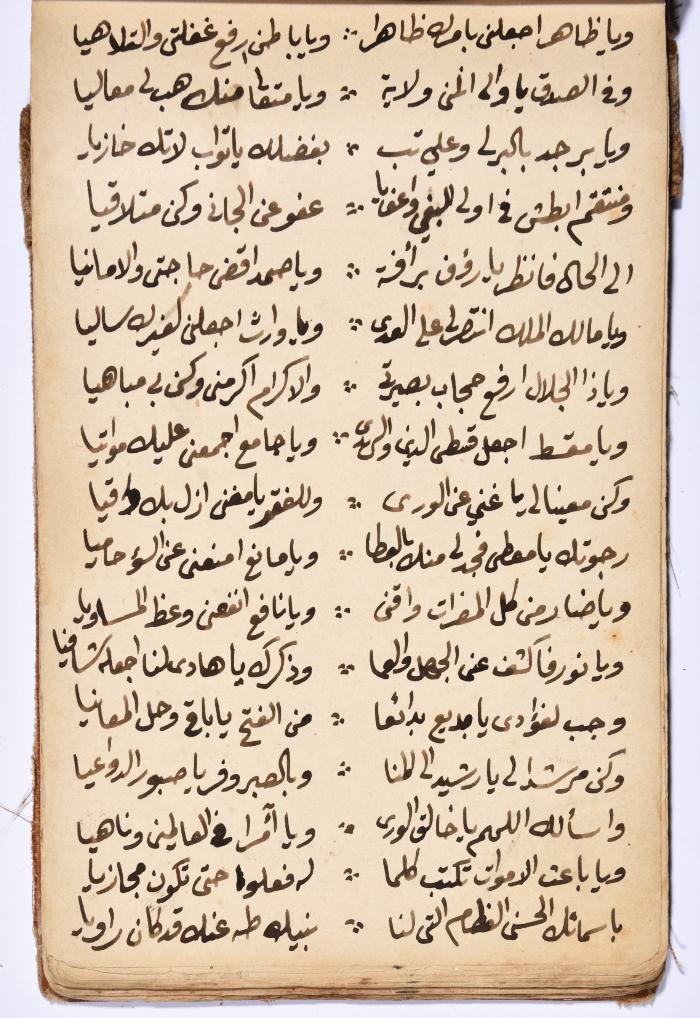 ويا ظاهر اجعلني بامرك ظاهرا ∴ ويا باطن ارفع غفلتي والتلاهيا
وفي الصدق يا والي انلني ولاية ∴ ويا متعال منك هب لي معاليا
ويا بر جد بالبر لي وعلي تب ∴ بفضلك يا تواب لا تك خازيا
ومنتقم ابطش في اولي البغي واعف يا ∴ عفو عن الجاني وكن متلاقيا
الى الحال فانظر يا رؤف برأفة ∴ ويا صمد اقض حاجتي والامانيا
ويا مالك الملك انتصر لي على العدى ∴ ويا وارث اجعلني لغيرك ساليا
ويا ذا الجلال ارفع حجاب بصيرتي ∴ والاكرام اكرمني وكن بي مباهيا
ويا مقسط اجعل قسطي الدين والهدى ∴ ويا جامع اجمعني عليك مواتيا
وكن معينا لي يا غني عن الورى ∴ وللفقر يا مغني ازل بك
رجوتك يا معطي فجد لي منك بالعطا ∴ ويا مانع امنعني عن السؤ حاميا
ويا ضار من كل المضرات واقني ∴ ويا نافع انفعني وعظ المساويا
ويا نور فاكشف عني الجهل والعما ∴ وذكرك يا هادي لنا اجعله شافيا
وجب لفؤادي يا بديع بدائعا ∴ من الفتح يا باقي وحل المعانيا
وكن مرشدا لي يا رشيد الى المنا ∴ وبالصبر وفر يا صبور الدواعيا
واسألك اللهم يا خالق الورى ∴ ويا آمرا في العالمين وناهيا
ويا باعث الاموات تكتب كلما ∴ له فعلوا حتى تكون مجازيا
باسمائك الحسنى العظام التي لنا ∴ نبيك طه عنك قد كان راويا